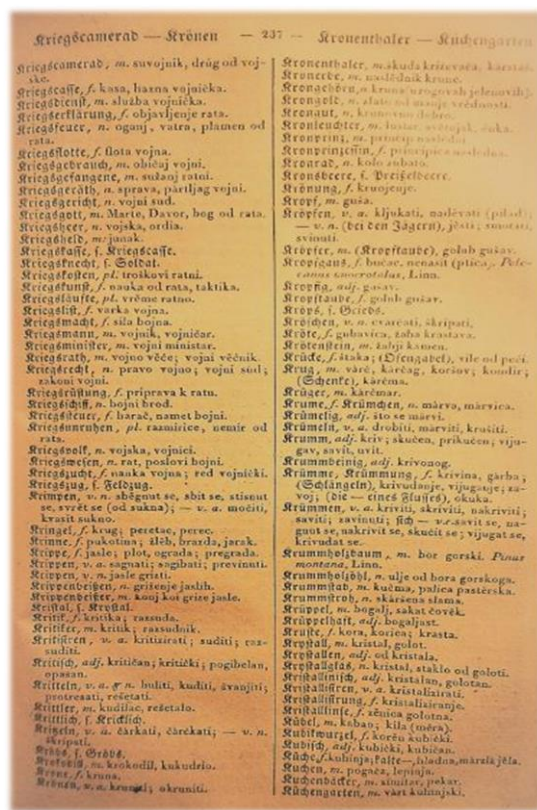 Kriegscamerad — Krönen — 237 — Kronenthaler — Küchengarten
Kriegscamerad, m. suvojnik, drùg od voj-
ske.
Kriegscasse, f. kasa, hazna vojnička.
Kriegsdienst, m. služba vojnička.
Kriegserklärung, f. objavljenje rata.
Kriegsfeuer, n. oganj, vatra, plamen od
rata.
Kriegsflotte, f. flota vojna.
Kriegsgebrauch, m. običaj vojni.
Kriegsgefangene, m. sužanj ratni.
Kriegsgeräth, n. sprava, pàrtljag vojni.
Kriegsgericht, n. vojni sud.
Kriegsgott, m. Marte, Davor, bog od rata.
Kriegsheer, n. vojska, ordia.
Kriegsheld, m. junak.
Kriegskasse, s. Kriegscasse.
Kriegsknecht, s. Soldat.
Kriegskosten, pl. troškovi ratni.
Kriegskunst, f. nauka od rata, taktika.
Kriegsläufte, pl. vrěme ratno.
Kriegslist, f. varka vojna.
Kriegsmacht, f. sila bojna.
Kriegsmann, m. vojnik, vojničar.
Kriegsminister, m. vojni ministar.
Kriegsrath, m. vojno věče; vojni věčnik.
Kriegsrecht, n. pravo vojno; vojni sud;
zakoni vojni.
Kriegsrüstung, f. priprava k ratu.
Kriegsschiff, n. bojni brod.
Kriegssteuer, f. harač, namet bojni.
Kriegsunruhen, pl. razmirice, nemir od
rata.
Kriegsvolk, n. vojska, vojnici.
Kriegswesen, n. rat, poslovi bojni.
Kriegszucht, f. nauka vojna; red vojnički.
Kriegszug, s. Feldzug.
Krimpen, v. n. sběgnut se, sbit se, stisnut
se, svrět se (od sukna); — v. a. močiti,
kvasit sukno.
Kringel, f. krug; peretac, perec.
Krinne, f. pukotina; žlěb, brazda, jarak.
Krippe, f. jasle; plot, ograda; pregrada.
Krippen, v. a. sagnati; sagibati; previnuti.
Krippen, v. n. jasle gristi.
Krippenbeißen, n. griženje jaslih.
Krippenbeißer, m. konj koi grize jasle.
Kristal, s. Krystal.
Kritik, f. kritika; razsuda.
Kritiker, m. kritik; razsudnik.
Kritisiren, v. a. kritizirati; suditi; raz-
suditi.
Kritisch, adj. kritičan; kritički; pogibelan,
opasan.
Kritteln, v. a. & n. huliti, kuditi, švanjiti;
protresati, rešetati.
Krittler, m. kudilac, rešetalo.
Krittlich, s. Kricklich.
Kritzeln, v. a. čàrkati, čàrčkati; — v. n.
škripati.
Kröbs, s. Gröbs.
Krokodil, m. krokodil, kukudrio.
Krone, f. kruna.
Krönen, v. a. kruniti; okruniti.
Kronenthaler, m. škuda križevača,
Kronerbe, m. naslědnik krune.
Krongehörn, n. kruna (rogovah jelenovih).
Krongold, n. zlato od manje vrědnosti.
Krongut, n. krunovno dobro.
Kronleuchter, m. lustar, světnjak,
Kronprinz, m. princip naslědni.
Kronprinzessin, f. principica naslědna.
Kronrad, n. kolo zubato.
Kronsbeere, s. Preißelbeere.
Krönung, f. krunjenje.
Kropf, m. guša.
Kröpfen, v. a. kljukati, naděvati (pilad);
— v. n. (bei den Jägern), jěsti;
svinuti.
Kröpfer, m. (Kropftaube), golub gušav.
Kropfgans, f. bučac, nenasit (ptica), Pele-
canus onocrotalus, Linn.
Kropfig, adj. gušav.
Kropftaube, f. golub gušav.
Kröps, s. Griebs.
Kröschen, v. n. cvàrčati, škripati.
Kröte, f. gubavica, žaba krastava.
Krötenstein, m. žabji kamen.
Krücke, f. štaka; (Ofengabel), vile od peći.
Krug, m. vàrč, kàrčag, koršov; kondir;
(Schenke), kàrčma.
Krüger, m. kàrčmar.
Krume, f. Krümchen, n. màrva, màrvica.
Krümelig, adj. što se màrvi.
Krümeln, v. a. drobiti, màrviti, krušiti.
Krumm, adj. kriv; skučen, prikučen; viju-
gav, savit, uvit.
Krummbeinig, adj. krivonog.
Krümme, Krümmung, f. krivina, garba;
(Schlängeln), krivudanje, vijuganje; za-
voj; (die — eines Flusses), okuka.
Krümmen, v. a. kriviti, skriviti, nakriviti;
saviti; zavinuti; sich — v. r. savit se, na-
gnut se, nakrivit se, skučit se; vijugat se,
krivudat se.
Krummholzbaum, m. bor gorski. Pinus
montana, Linn.
Krummholzöhl, n. ulje od bora gorskoga.
Krummstab, m. kučma, palica pastěrska.
Krummstroh, n. skàršena slama.
Krüppel, m. bogalj, sakat čověk.
Krüppelhaft, adj. bogaljast.
Kruste, f. kora, korica; krasta.
Krystall, m. kristal, golot.
Krystallen, adj. od kristala.
Krystallglas, n. kristal, staklo od goloti.
Kristallinisch, adj. kristalan, golotan.
Kristallisiren, v. a. kristalizirati.
Kristallisirung, f. kristaliziranje.
Kristallinse, f. zěnica golotna.
Kübel, m. kabao; kila (měra).
Kubikwurzel, f. korěn kubički.
Kubisch, adj. kubički, kubičan.
Küche, f. kuhinja; kalte —, hladna, màrzla jěla.
Kuchen, m. pogača, lepinja.
Kuchenbäcker, m. simitar, pekar.
Küchengarten, m. vàrt kuhinjski.